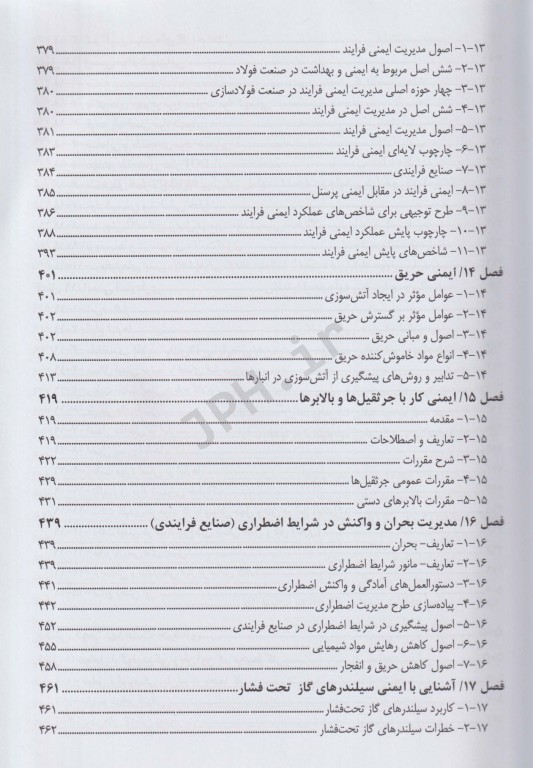 ۱۳-۱- اصول مدیریت ایمنی فرایند ........ ۳۷۹
۱۳-۲- شش اصل مربوط به ایمنی و بهداشت در صنعت فولاد ........ ۳۷۹
۱۳-۳- چهار حوزه اصلی مدیریت ایمنی فرایند در صنعت فولادسازی ........ ۳۸۰
۱۳-۴- شش اصل در مدیریت ایمنی فرایند ........ ۳۸۰
۱۳-۵- اصول مدیریت ایمنی فرایند ........ ۳۸۱
۱۳-۶- چارچوب لایه‌ای ایمنی فرایند ........ ۳۸۳
۱۳-۷- صنایع فرایندی ........ ۳۸۴
۱۳-۸- ایمنی فرایند در مقابل ایمنی پرسنل ........ ۳۸۵
۱۳-۹- طرح توجیهی برای شاخص‌های عملکرد ایمنی فرایند ........ ۳۸۶
۱۳-۱۰- چارچوب پایش عملکرد ایمنی فرایند ........ ۳۸۸
۱۳-۱۱- شاخص‌های پایش ایمنی فرایند ........ ۳۹۳
فصل ۱۴/ ایمنی حریق ........ ۴۰۱
۱۴-۱- عوامل مؤثر در ایجاد آتش‌سوزی ........ ۴۰۱
۱۴-۲- عوامل مؤثر بر گسترش حریق ........ ۴۰۲
۱۴-۳- اصول و مبانی حریق ........ ۴۰۲
۱۴-۴- انواع مواد خاموش‌کننده حریق ........ ۴۰۸
۱۴-۵- تدابیر و روش‌های پیشگیری از آتش‌سوزی در انبارها ........ ۴۱۳
فصل ۱۵/ ایمنی کار با جرثقیل‌ها و بالابرها ........ ۴۱۹
۱۵-۱- مقدمه ........ ۴۱۹
۱۵-۲- تعاریف و اصطلاحات ........ ۴۱۹
۱۵-۳- شرح مقررات ........ ۴۲۲
۱۵-۴- مقررات عمومی جرثقیل‌ها ........ ۴۲۹
۱۵-۵- مقررات بالابرهای دستی ........ ۴۳۱
فصل ۱۶/ مدیریت بحران و واکنش در شرایط اضطراری (صنایع فرایندی) ........ ۴۳۹
۱۶-۱- تعاریف- بحران ........ ۴۳۹
۱۶-۲- تعاریف- مانور شرایط اضطراری ........ ۴۳۹
۱۶-۳- دستورالعمل‌های آمادگی و واکنش اضطراری ........ ۴۴۱
۱۶-۴- پیاده‌سازی طرح مدیریت اضطراری ........ ۴۴۲
۱۶-۵- اصول پیشگیری در شرایط اضطراری در صنایع فرایندی ........ ۴۵۲
۱۶-۶- اصول کاهش رهایش مواد شیمیایی ........ ۴۵۵
۱۶-۷- اصول کاهش حریق و انفجار ........ ۴۵۸
فصل ۱۷/ آشنایی با ایمنی سیلندرهای گاز تحت فشار ........ ۴۶۱
۱۷-۱- کاربرد سیلندرهای گاز تحت‌فشار ........ ۴۶۱
۱۷-۲- خطرات سیلندرهای گاز تحت‌فشار ........ ۴۶۲
JPH.ir